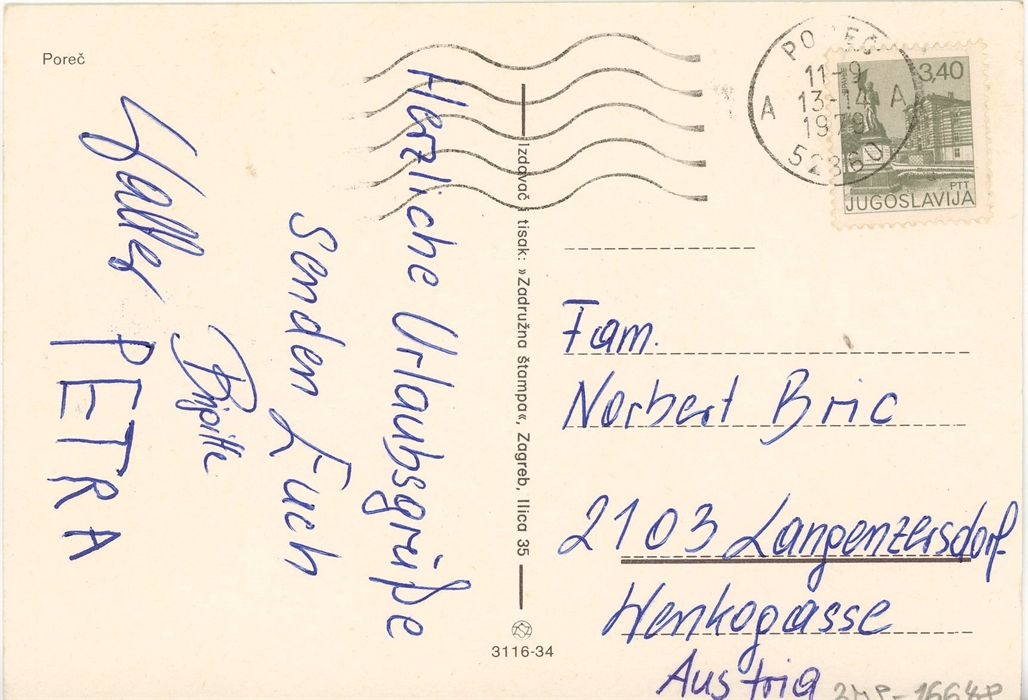 Poreč
Herzliche Urlaubsgrüße
senden Euch
Walter
Brigitte
PETRA
Izdavač i tisak: »Zadružna štampa«, Zagreb, Ilica 35
3116-34
PO EČ
11-9
A 13-14 A
1979
52360
3,40
PTT
JUGOSLAVIJA
Fam.
Norbert Bric
2103 Langenzersdorf
Wenkogasse
Austria